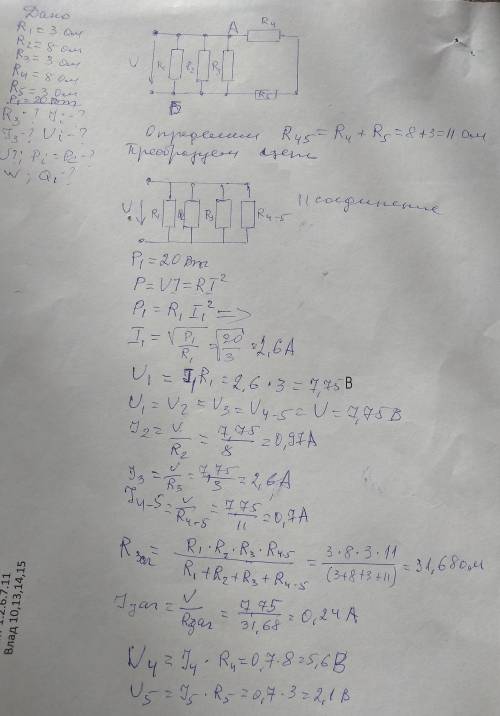 Дано
R₁ = 3 ом
R₂ = 8 ом
R₃ = 3 ом
R₄ = 8 ом
R₅ = 3 ом
P₁ = 20 Вт
R₃-? Ji-?
J₃-? Vi-?
Pi = Pi-?
W; Qi-?
A
R₄
U
R₁
R₂
R₃
R₅
Б
Определим R₄₅ = R₄ + R₅ = 8+3 = 11 ом
Преобразуем цепь
U
R₁
R₃
R₄₋₅
11 соединение
P₁ = 20 Вт
P = VJ = RI²
P₁ = R₁ I₁² =>
I₁ = √P₁/R₁ = √20/3 = 2,6 A
U₁ = J₁R₁ = 2,6 · 3 = 7,75 В
U₁ = V₂ = V₃ = V₄₋₅ = U = 7,75 В
J₂ = V/R₂ = 7,75/8 = 0,97 A
J₃ = V/R₃ = 7,75/3 = 2,6 A
J₄₋₅ = V/R₄₋₅ = 7,75/11 = 0,7 A
Rзаг = R₁ · R₂ · R₃ · R₄₅/R₁ + R₂ + R₃ + R₄₋₅ = 3·8·3·11/(3+8+3+11) = 31,68 ом
Jзаг = V/Rзаг = 7,75/31,68 = 0,24 A
U₄ = J₄ · R₄ = 0,7 · 8 = 5,6 В
U₅ = J₅ · R₅ = 0,7 · 3 = 2,1 В
1.2.6.7.11
Влад 10,13,14,15